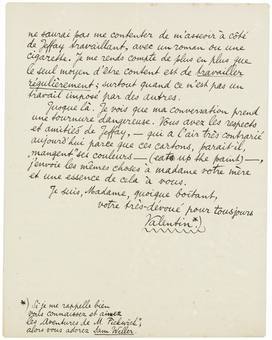 ne saurai pas me contenter de m'asseoir à côté
de Jeffay travaillant, avec un roman ou une
cigarette. Je me rends compte de plus en plus que
le seul moyen d'être content est de travailler
régulièrement; surtout quand ce n'est pas un
travail imposé par des autres.
Jusque là. Je vois que ma conversation prend
une tournure dangereuse. Vous avez les respects
et amitiés de Jeffay, — qui a l'air très contrarié
aujourd'hui parce que ces cartons, paraît-il,
"mangent" ses couleurs — (eats up the paint) —,
j'envoie les mêmes choses à madame votre mère
et une essence de cela à vous.
Je suis, Madame, quoique boitant,
votre très-dévoué pour tousjours
Valentin *)
*) Si je me rappelle bien
vous connaissez et aimez
les Aventures de M. Pickwick;
alors vous adorez Sam Weller.